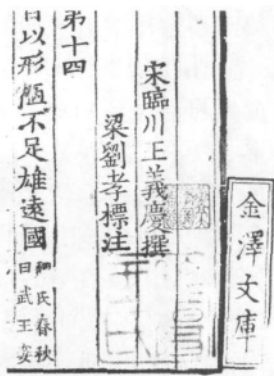 金澤文庫
宋臨川王義慶撰
梁劉孝標注
第十四
自以形陋不足雄遠國
氏春秋
曰武王